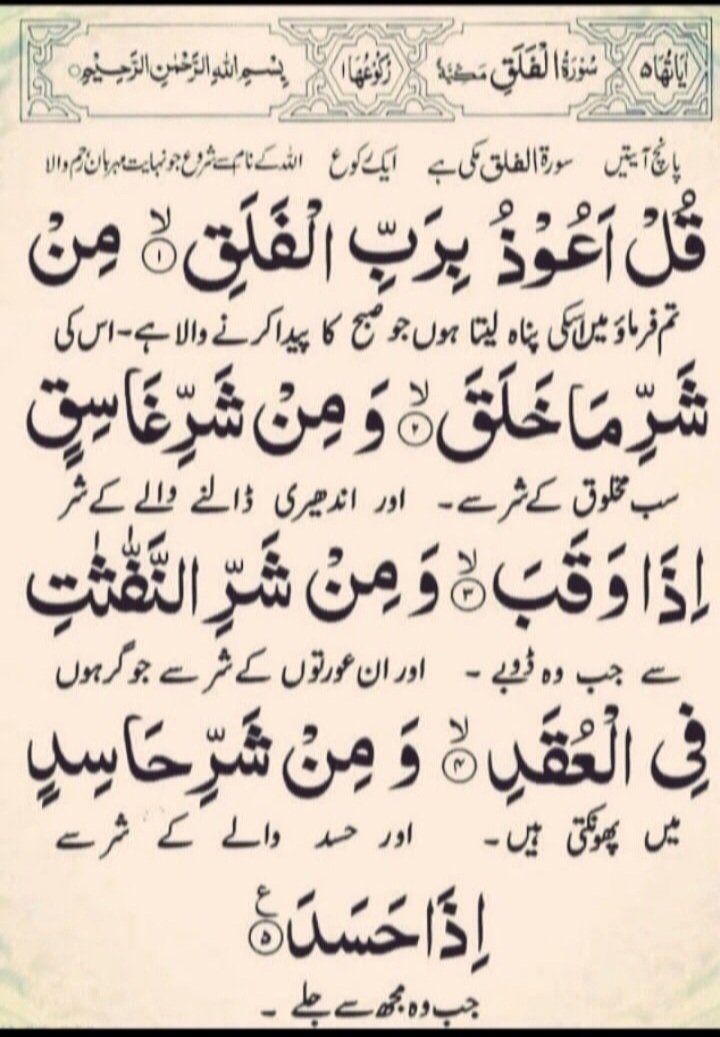 اٰیَاتُهَا ۵ سُوْرَةُ الْفَلَقِ مَكِّیَّةٌ رُكُوْعُهَا ۱ بِسْمِ اللّٰهِ الرَّحْمٰنِ الرَّحِیْمِ
پانچ آیتیں سورۃ الفلق مکی ہے ایک رکوع اللہ کے نام سے شروع جو نہایت مہربان رحم والا
قُلْ اَعُوْذُ بِرَبِّ الْفَلَقِ ۙ﴿۱﴾ مِنْ
تم فرماؤ میں اسکی پناہ لیتا ہوں جو صبح کا پیدا کرنے والا ہے۔ اس کی
شَرِّ مَا خَلَقَ ۙ﴿۲﴾ وَ مِنْ شَرِّ غَاسِقٍ
سب مخلوق کے شر سے۔ اور اندھیری ڈالنے والے کے شر
اِذَا وَقَبَ ۙ﴿۳﴾ وَ مِنْ شَرِّ النَّفّٰثٰتِ
سے جب وہ ڈوبے۔ اور ان عورتوں کے شر سے جو گرہوں
فِی الْعُقَدِ ۙ﴿۴﴾ وَ مِنْ شَرِّ حَاسِدٍ
میں پھونکتی ہیں۔ اور حسد والے کے شر سے
اِذَا حَسَدَ ﴿۵﴾ ع
جب وہ مجھ سے جلے۔